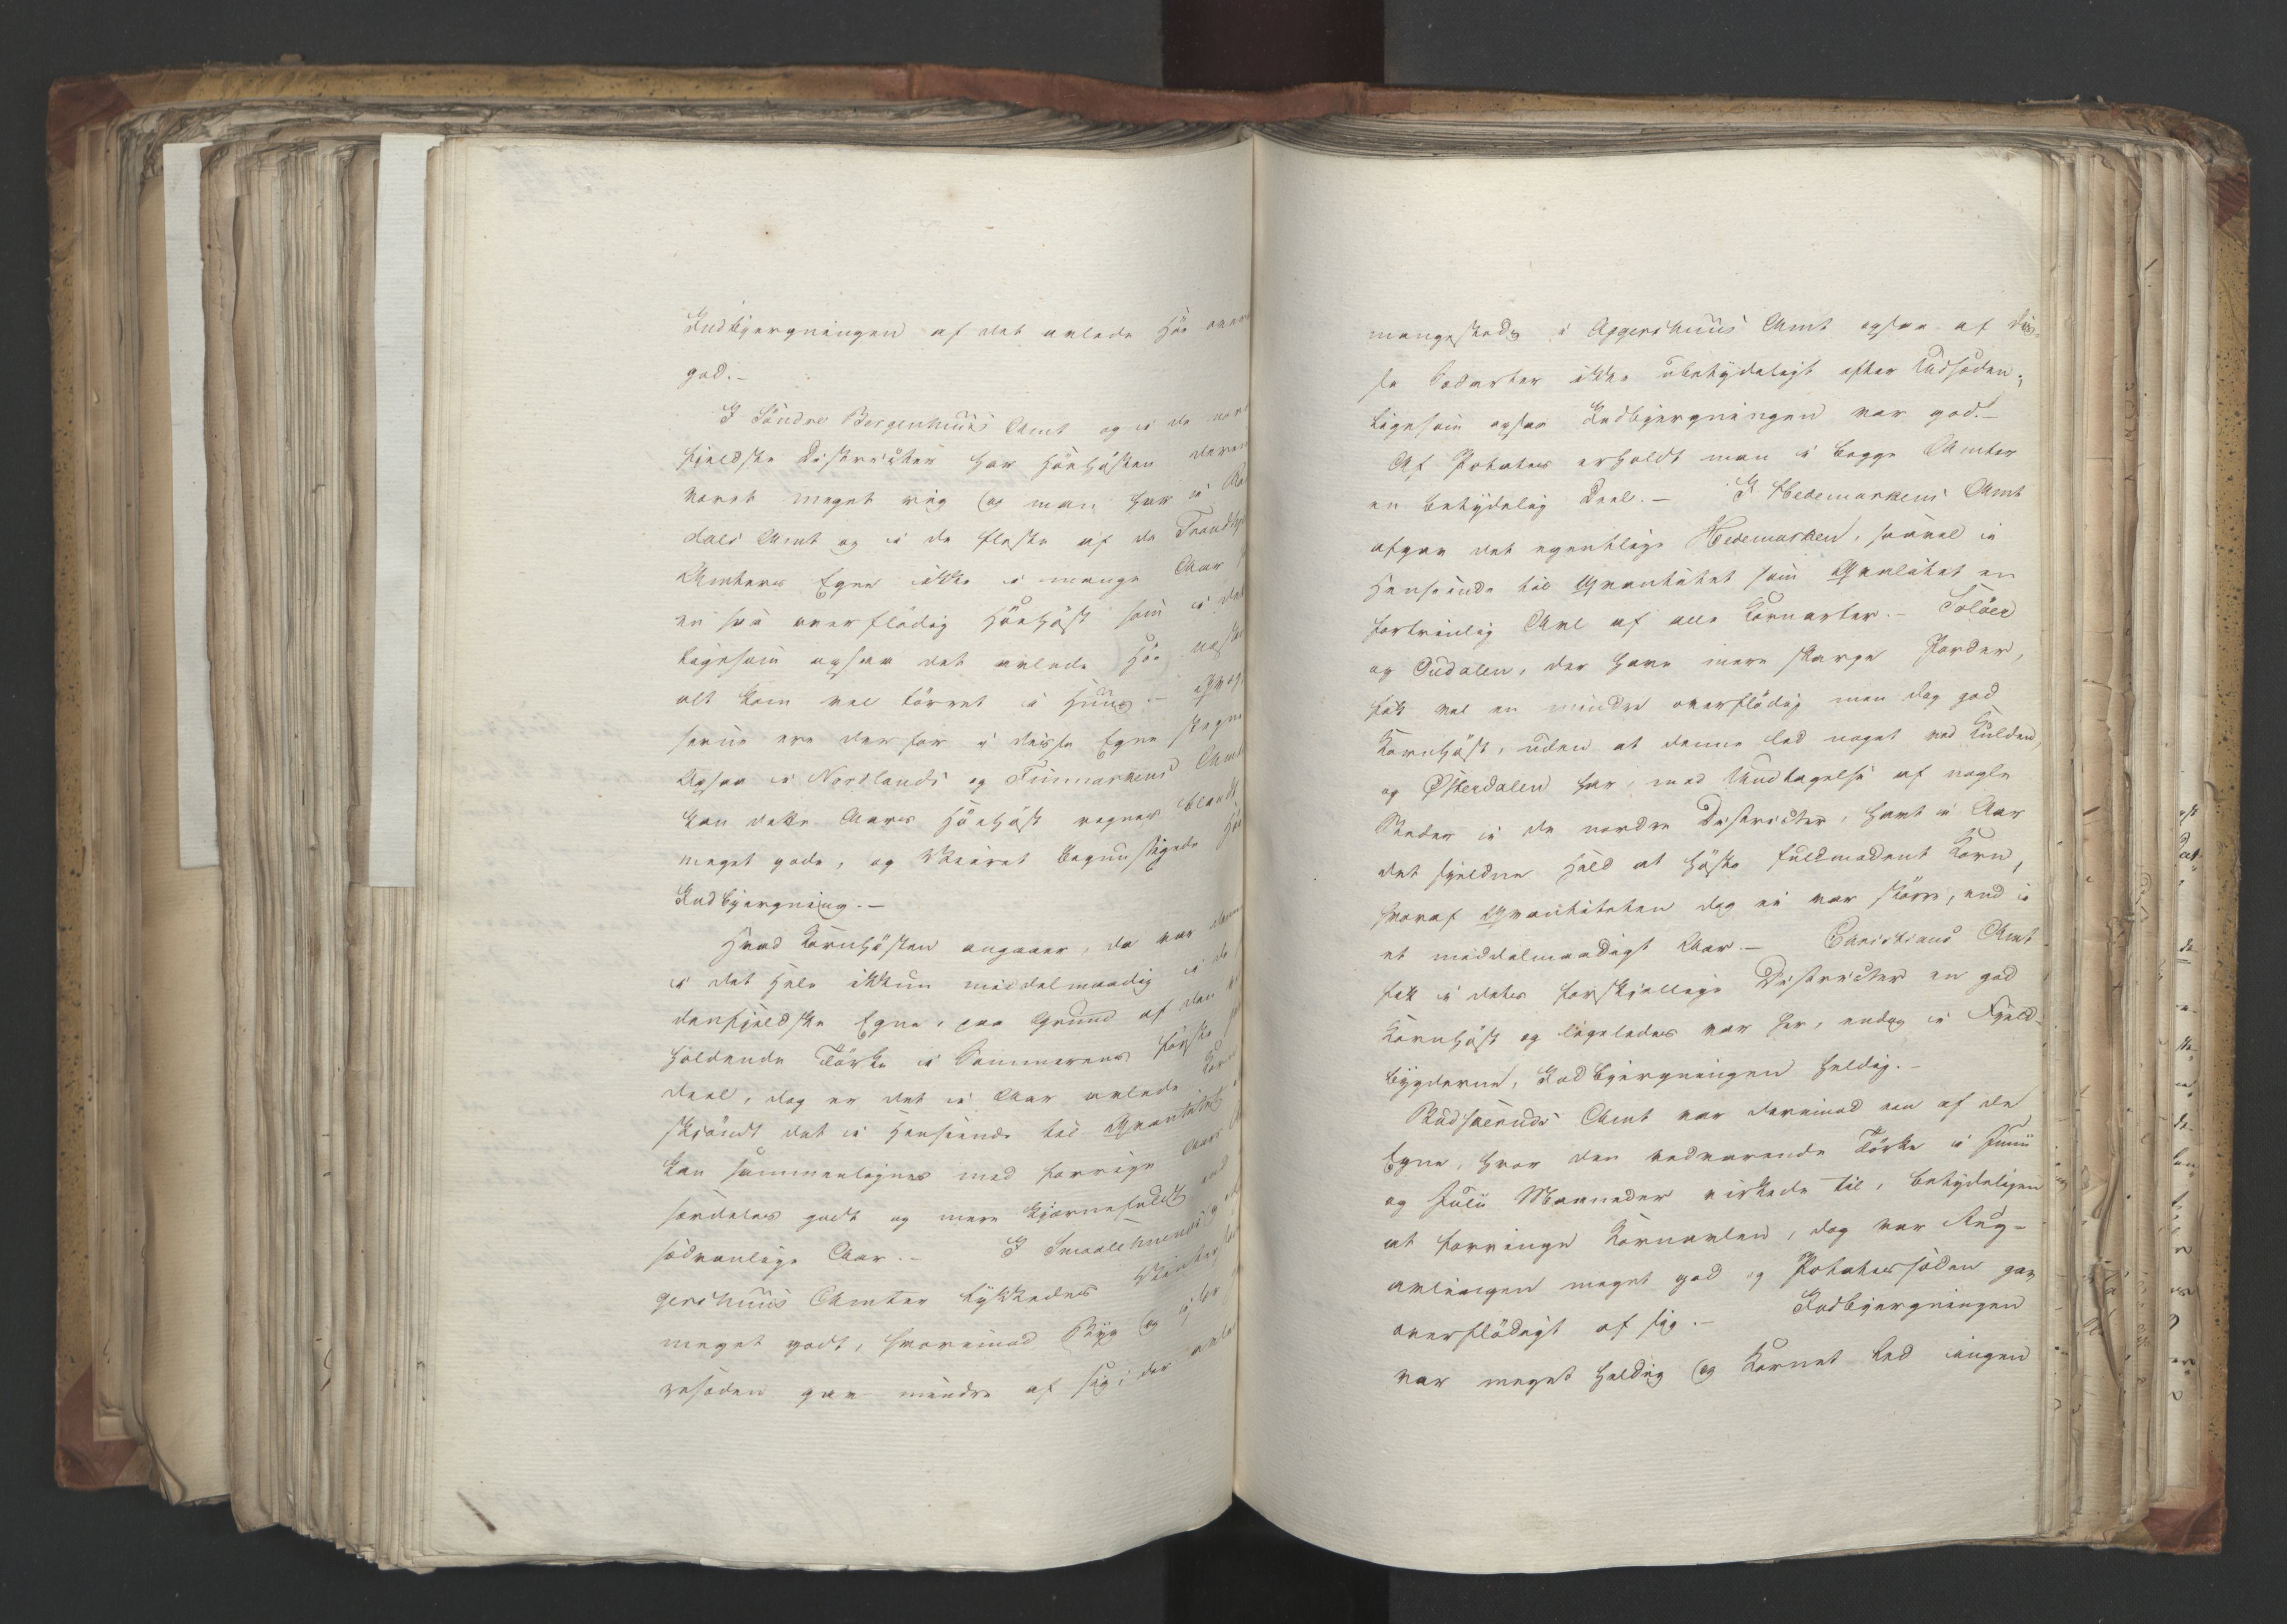 Indbjergningen af det avlede Höe over
god.-
I Söndre Bergenhuus Amt og i de nord
fjeldske Districter har Höehösten deri
været meget riig og man har i Ro
dals Amt og i de fleste af de Trondhj
Amters Egne ikke i mange Aar
en saa overflödig Höehöst som i det
ligesom ogsaa det avlede Höe næsten
alt kom vel törret i Huus.-
serne ere derfor i disse Egne
Ogsaa i Nordlands og Finmarkens Amt
kan dette Aars Höehöst regnes blandt
meget gode, og Veiret begunstigede
Indbjergning.-
Hvad Kornhösten angaaer, da var denne
i det Hele ikkun middelmaadig i de
denfjeldske Egne, paa Grund af den
holdende Törke i Sommerens förste
Deel, dog er det i Aar avlede Korn
skjöndt det i Henseende til Qvantitet
kan sammenlignes med forrige Aars
særdeles godt og mere kjernefuldt end
sædvanlige Aar.- I Smaalehnenes og
gershuus Amter lykkedes Vinter
meget godt, hvorimod Byg og
resæden gav mindre af sig; der
mangesteds i Aggershuus Amt ogsaa af dis-
se Sædarter ikke ubetydeligt efter Udsæden;
ligesom ogsaa Indbjergningen var god.-
Af Potates erholdt man i begge Amter
en betydelig Deel.- I Hedemarkens Amt
afgav det egentlige Hedemarken, saavel i
Henseende til Qvantitet som Qvalitet en
fortrinlig Avl af alle Kornarter.- Solöer
og Oudalen, der have mere skarpe Jorder,
fik vel en mindre overflödig men dog god
Kornhöst, uden at denne led noget ved Kulden,
og Österdalen har, med Undtagelse af nogle
Steder i de nordre Districter, havt i Aar
det sjeldne Held at höste fuldmodent Korn,
hvoraf Qvantiteten dog ei var större, end i
et middelmaadigt Aar.- Christians Amt
fik i dets forskjellige Districter en god
Kornhöst og ligeledes var her, endog i Fjeld-
bygderne, Indbjergningen heldig.-
Budskeruds Amt var derimod een af de
Egne, hvor den vedvarende Törke i Junii
og Julii Maaneder virkede til, betydeligen
at forringe Kornavlen, dog var Rug-
avlingen meget god og Potatessæden gav
overflödigt af sig.- Indbjergningen
var meget heldig og Kornet led ingen